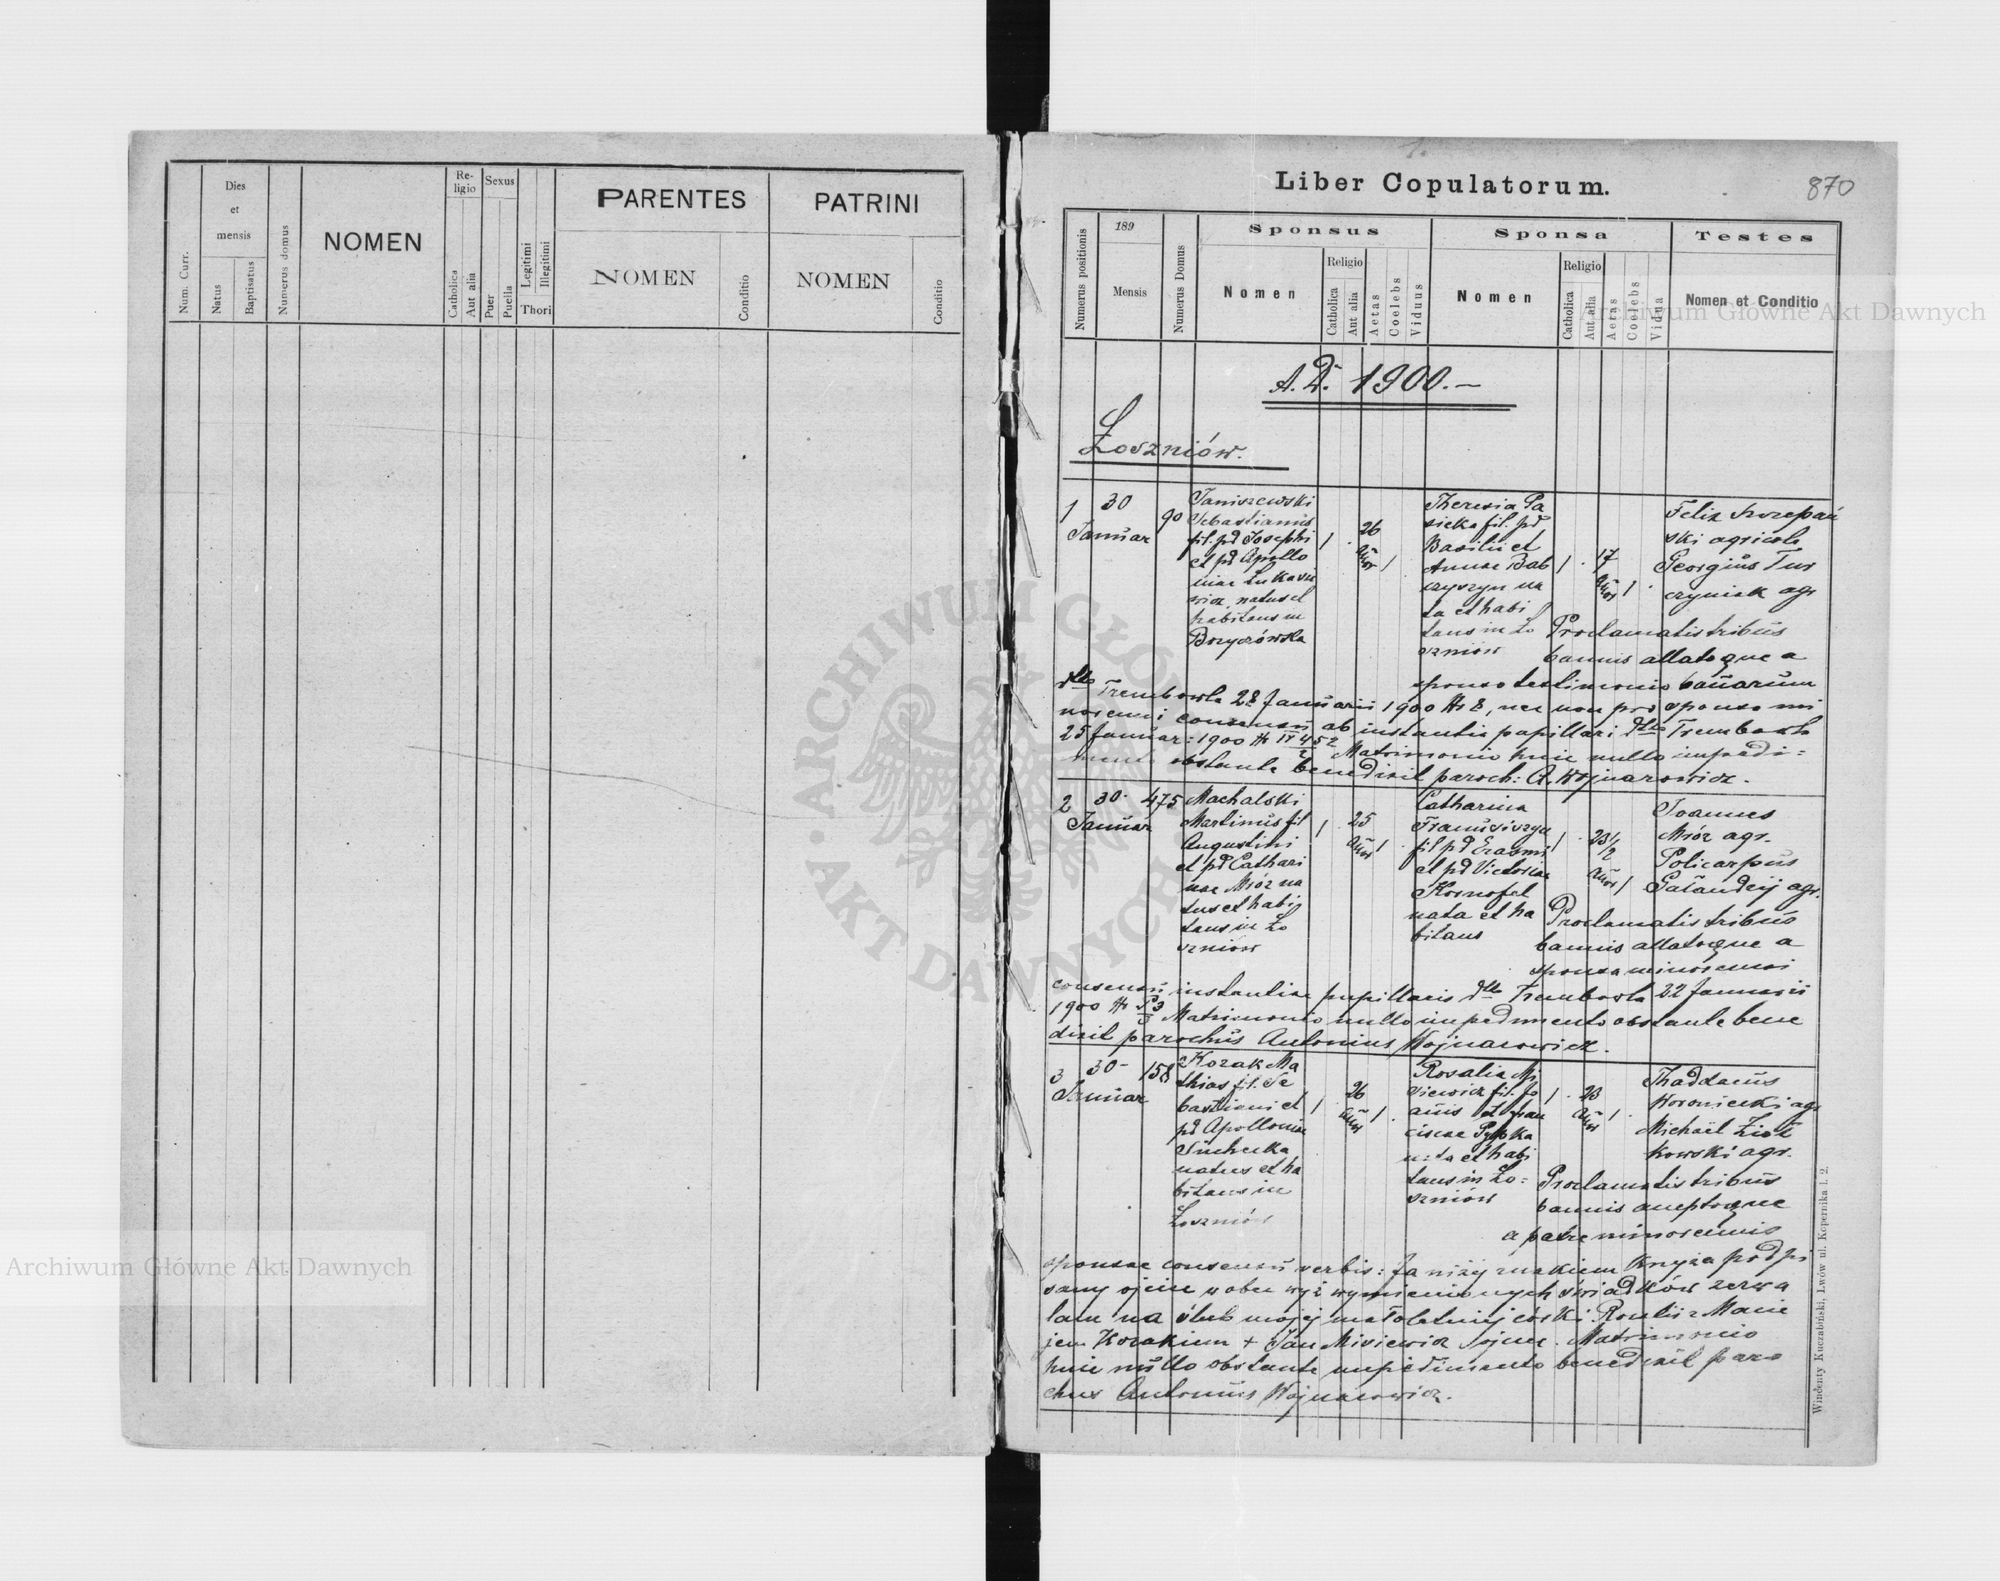 Num. Curr.
Dies
et
mensis
Natus
Baptisatus
Numerus domus
NOMEN
Re-
ligio
Catholica
Aut alia
Sexus
Puer
Puella
Legitimi
Illegitimi
Thori
PARENTES
NOMEN
Conditio
PATRINI
NOMEN
Conditio
870
Liber Copulatorum.
Numerus positionis
189
Mensis
Numerus Domus
Sponsus
Nomen
Religio
Catholica
Aut alia
Aetas
Coelebs
Viduus
Sponsa
Nomen
Religio
Catholica
Aut alia
Aetas
Coelebs
Vidua
Testes
Nomen et Conditio
A. D. 1900.-
Łoszniów.
1
30
Januar
90
Janiszewski
Sebastianus
fil. pd Josephi
et pd Apollo
niae Łukasie
wicz, natus et
habitans in
Boryczówka
1
26
annor
1
Theresia Pa
siecka fil. pd
Basilii et
Annae Bab
czyszyn na
ta et habi
tans in Ło
szniów
1
17
annor
1
Felix Szczepań
ski agricola
Georgius Tur
czyniak agr
Proclamatis tribus
bannis allatoque a
sponso testimonio bannorum
dtto Trembowla 28 Januarii 1900 Nr 8, nec non pro sponso mi
norenni consensu ab instantia pupillari dtto Trembowla
25 Januar: 1900 Nr IV 452/2 Matrimonio huic nullo impedi=
mento obstante benedixit paroch: A. Wojnarowicz.
2
30.
Januar
475
Machalski
Martinus fil
Augustini
et pd Cathari
nae Mróz na
tus et habi
tans in Ło
szniów
1
25
annor
1
Catharina
fil pd Erasmi
et pd Victoriae
Kornafel
nata et ha
bitans
1
23 1/2
annor
1
Joannes
Mróz agr.
Policarpus
agr.
Proclamatis tribus
bannis allatoque a
sponsa minorenni
consensu instantiae pupillaris dtto Trembowla 22 Januarii
1900 Nr Matrimonio nullo impedimento obstante bene
dixit parochus Antonius Wojnarowicz.
3
30-
Januar
158
Kozak Ma
thias fil. Se
bastiani et
pd Apolloniae
natus et ha
bitans in
Łoszniów
1
26
annor
1
Rosalia Mi
siewicz fil. Jo
annis et Fran
ciscae Pypka
nata et habi
tans in Ło=
szniów
1
23
annor
1
Thaddaeus
Woroniecki agr
Michaël Ziół
kowski agr.
Proclamatis tribus
bannis acceptoque
a patre minorennis
sponsae consensu verbis: Ja niżej znakiem Krzyża podpi
sany ojciec w obec wyż wymienionych świadków zezwa
lam na ślub mojej małoletniej córki Rozalii z Macie
jem Kozakiem + Jan Misiewicz ojciec. Matrimonio
huic nullo obstante impedimento benedixit paro
chus Antonius Wojnarowicz.
Windenty Kuczabiński, Lwów ul. Kopernika l. 2.
Archiwum Główne Akt Dawnych
Archiwum Główne Akt Dawnych
ARCHIWUM GŁÓWNE AKT DAWNYCH